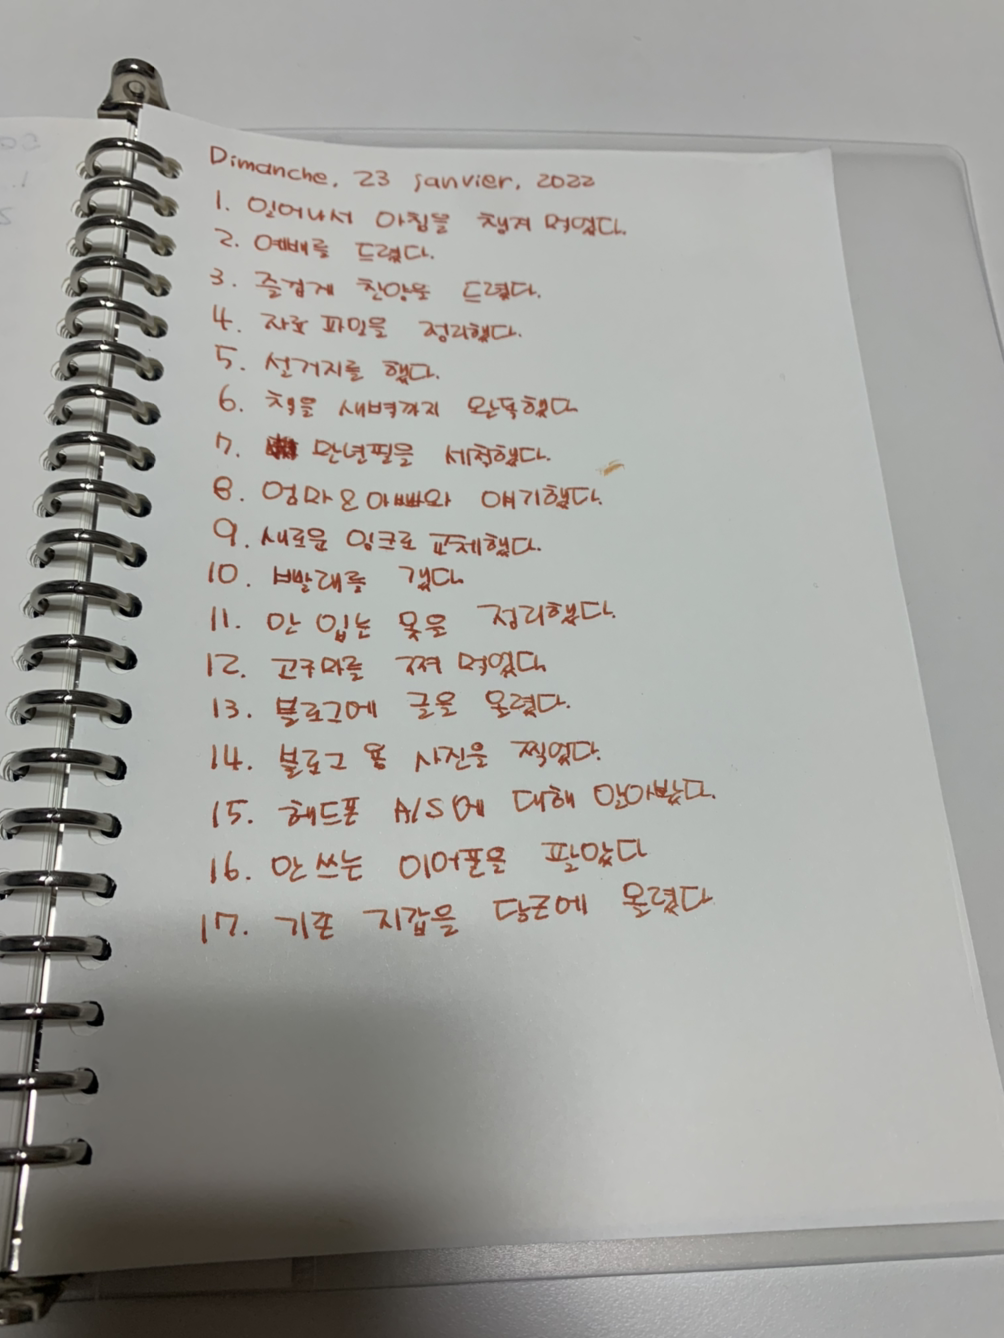 Dimanche, 23 janvier, 2022
1. 일어나서 아침을 챙겨 먹었다.
2. 예배를 드렸다.
3. 즐겁게 찬양을 드렸다.
4. 자료 파일을 정리했다.
5. 설거지를 했다.
6. 책을 새벽까지 완독했다
7. 만년필을 세척했다.
8. 엄마와 아빠와 얘기했다.
9. 새로운 잉크로 교체했다.
10. 빨래를 갰다
11. 안 입는 옷을 정리했다.
12. 고구마를 쪄 먹었다
13. 블로그에 글을 올렸다.
14. 블로그 용 사진을 찍었다.
15. 헤드폰 A/S에 대해 알아봤다.
16. 안 쓰는 이어폰을 팔았다
17. 기존 지갑을 당근에 올렸다